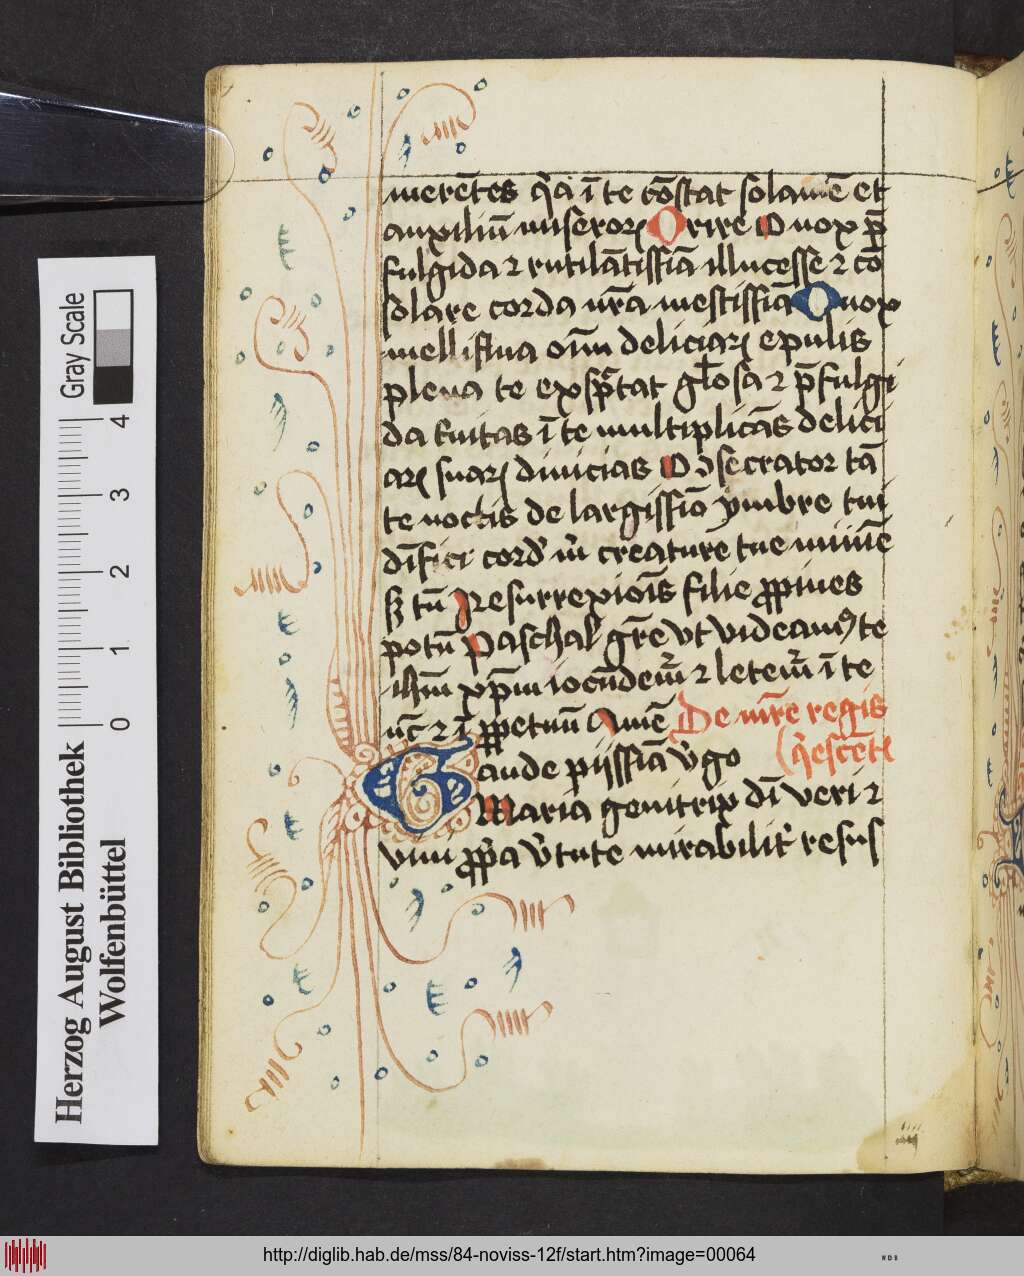 merētes q̄a ī te cōstat solamē et
auxiliū miseroꝝ Orire O nox p̄
fulgida ⁊ rutilātissīa illucesse ⁊ cō
solare corda nr̄a mestissīa O nox
melliflua oīm deliciaꝝ epulis
plena te exspectat gl̄osa ⁊ p̄fulgi
da t̄nitas ī te multiplicās delici
aꝝ suaꝝ diuicias O ꝯsecrator tā
te noctis de largissīo ymbre tui
dīfici cord' m̄ creature tue mīmē
sꝫ tū Resurrexiois filie ꝓpines
potū Paschal' gr̄e vt videamꝰ te
ihm̄ xp̄m iocūdem̄r ⁊ letem̄r ī te
nūc ⁊ ī ꝑpetuū Amē De mr̄e regis
Gaude pijssīa v̄go q̄escētꝭ
Maria genitrix dī veri ⁊
viui ꝓp̄a v̄tute mirabilit' resus
Herzog August Bibliothek
Wolfenbüttel
Gray Scale
0 1 2 3 4
http://diglib.hab.de/mss/84-noviss-12f/start.htm?image=00064